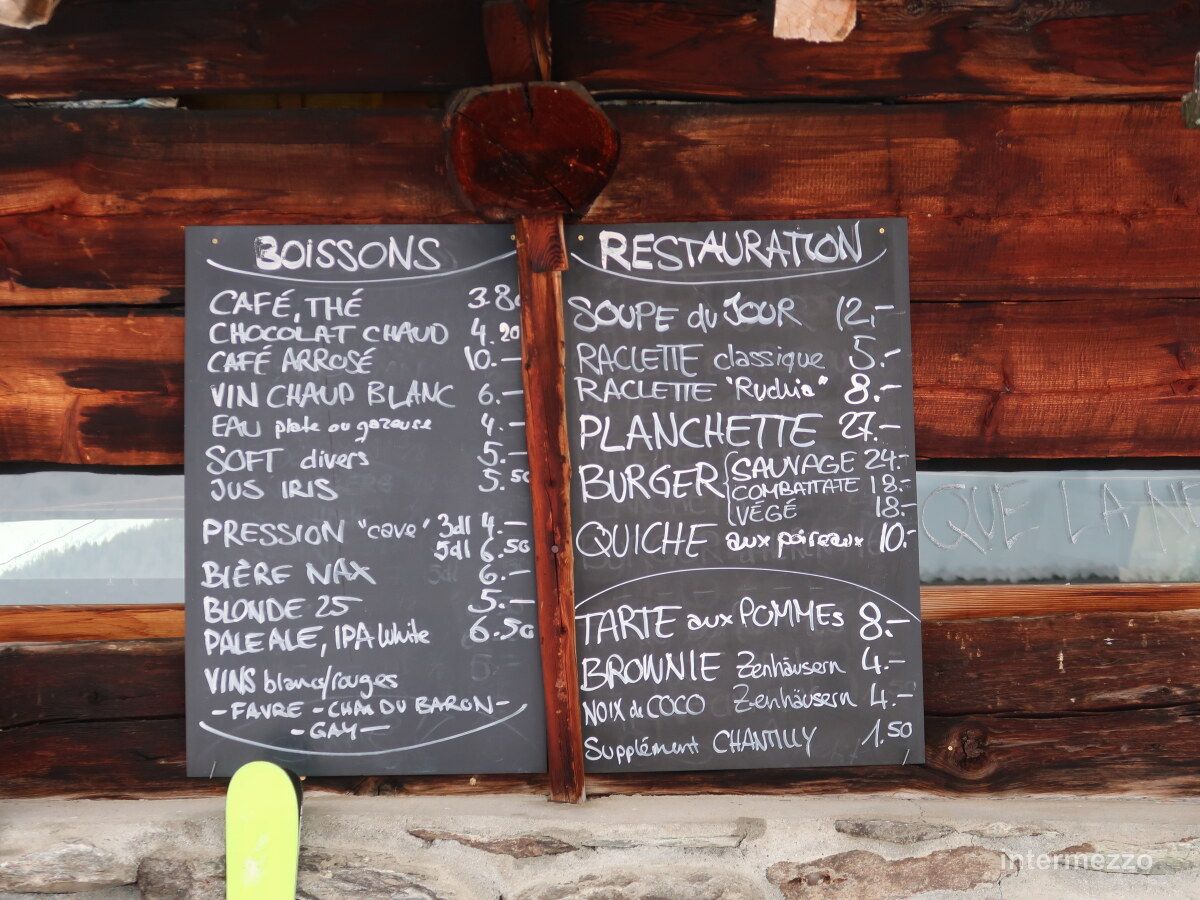 BOISSONS
CAFÉ, THÉ 3.80
CHOCOLAT CHAUD 4.20
CAFÉ ARROSÉ 10.—
VIN CHAUD BLANC 6.—
EAU plate ou gazeuse 4.—
SOFT divers 5.—
JUS IRIS 5.50
PRESSION "cave" 3dl 4.—
5dl 6.50
BIÈRE NAX 6.—
BLONDE 25 5.—
PALE ALE, IPA White 6.50
VINS blancs/rouges
- FAVRE - DU BARON -
- GAY —
RESTAURATION
SOUPE du JOUR 12.-
RACLETTE classique 5.-
RACLETTE "Ruchia" 8.-
PLANCHETTE 27.-
BURGER SAUVAGE 24.-
COMBATTATE 18.-
VÉGÉ 18.-
QUICHE aux poireaux 10.-
TARTE aux POMMES 8.-
BROWNIE Zenhäusern 4.-
NOIX de COCO Zenhäusern 4.-
Supplément CHANTILLY 1.50
QUE LA
intermezzo